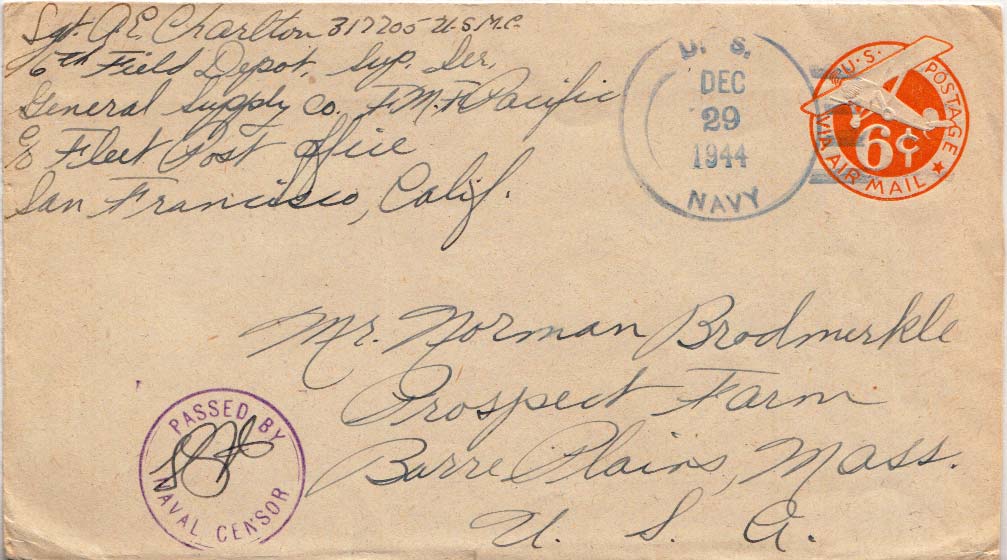 Sgt. A.E. Charlton 317705 U.S.M.C.
16th Field Depot, Sup. Ser.
General Supply Co. F.M.F. Pacific
c/o Fleet Post Office
San Francisco, Calif.
U. S.
DEC
29
1944
NAVY
U.S. POSTAGE
6¢
VIA AIR MAIL
Mr. Norman Brodmerkle
Prospect Farm
Barre Plains, Mass.
U. S. A.
PASSED BY
NAVAL CENSOR